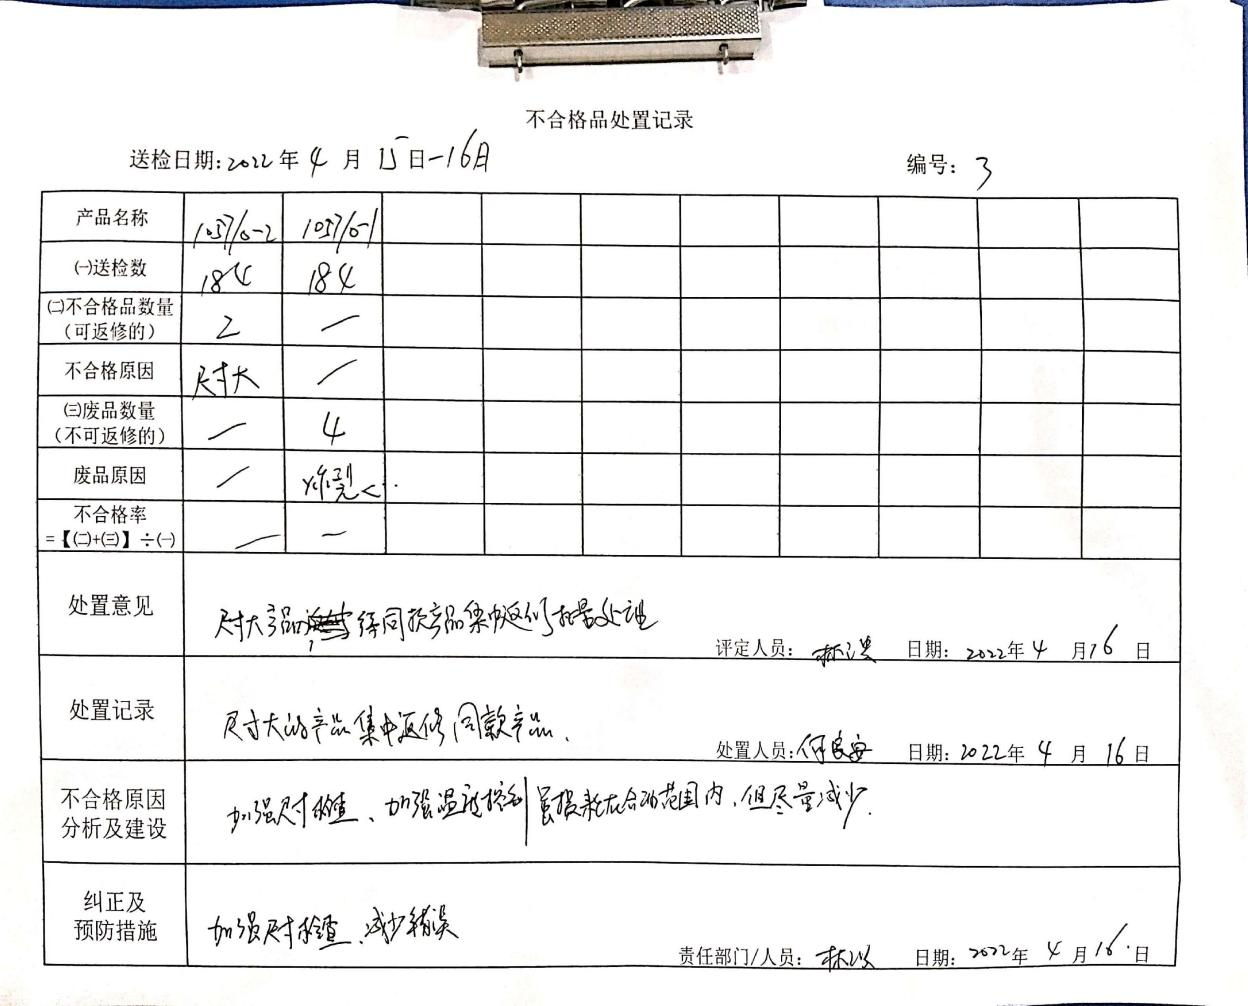 不合格品处置记录
送检日期:2022年4月15日-16日 编号: 3
产品名称 10571/0-2 10571/0-1
㈠送检数 184 184
㈡不合格品数量 2 —
(可返修的)
不合格原因 尺寸大 —
㈢废品数量 — 4
(不可返修的)
废品原因 —
不合格率 — —
=【㈡+㈢】÷㈠
处置意见 尺寸大产品 待同款产品集中返修 处理
评定人员: 林 日期: 2022年4月16日
处置记录 尺寸大的产品集中返修同款产品.
处置人员:何良安 日期:2022年4月16日
不合格原因 加强尺寸检查、加强温度控制 虽损耗在合理范围内,但尽量减少.
分析及建设
纠正及 加强尺寸检查、减少错误
预防措施
责任部门/人员: 林 日期: 2022年4月16.日